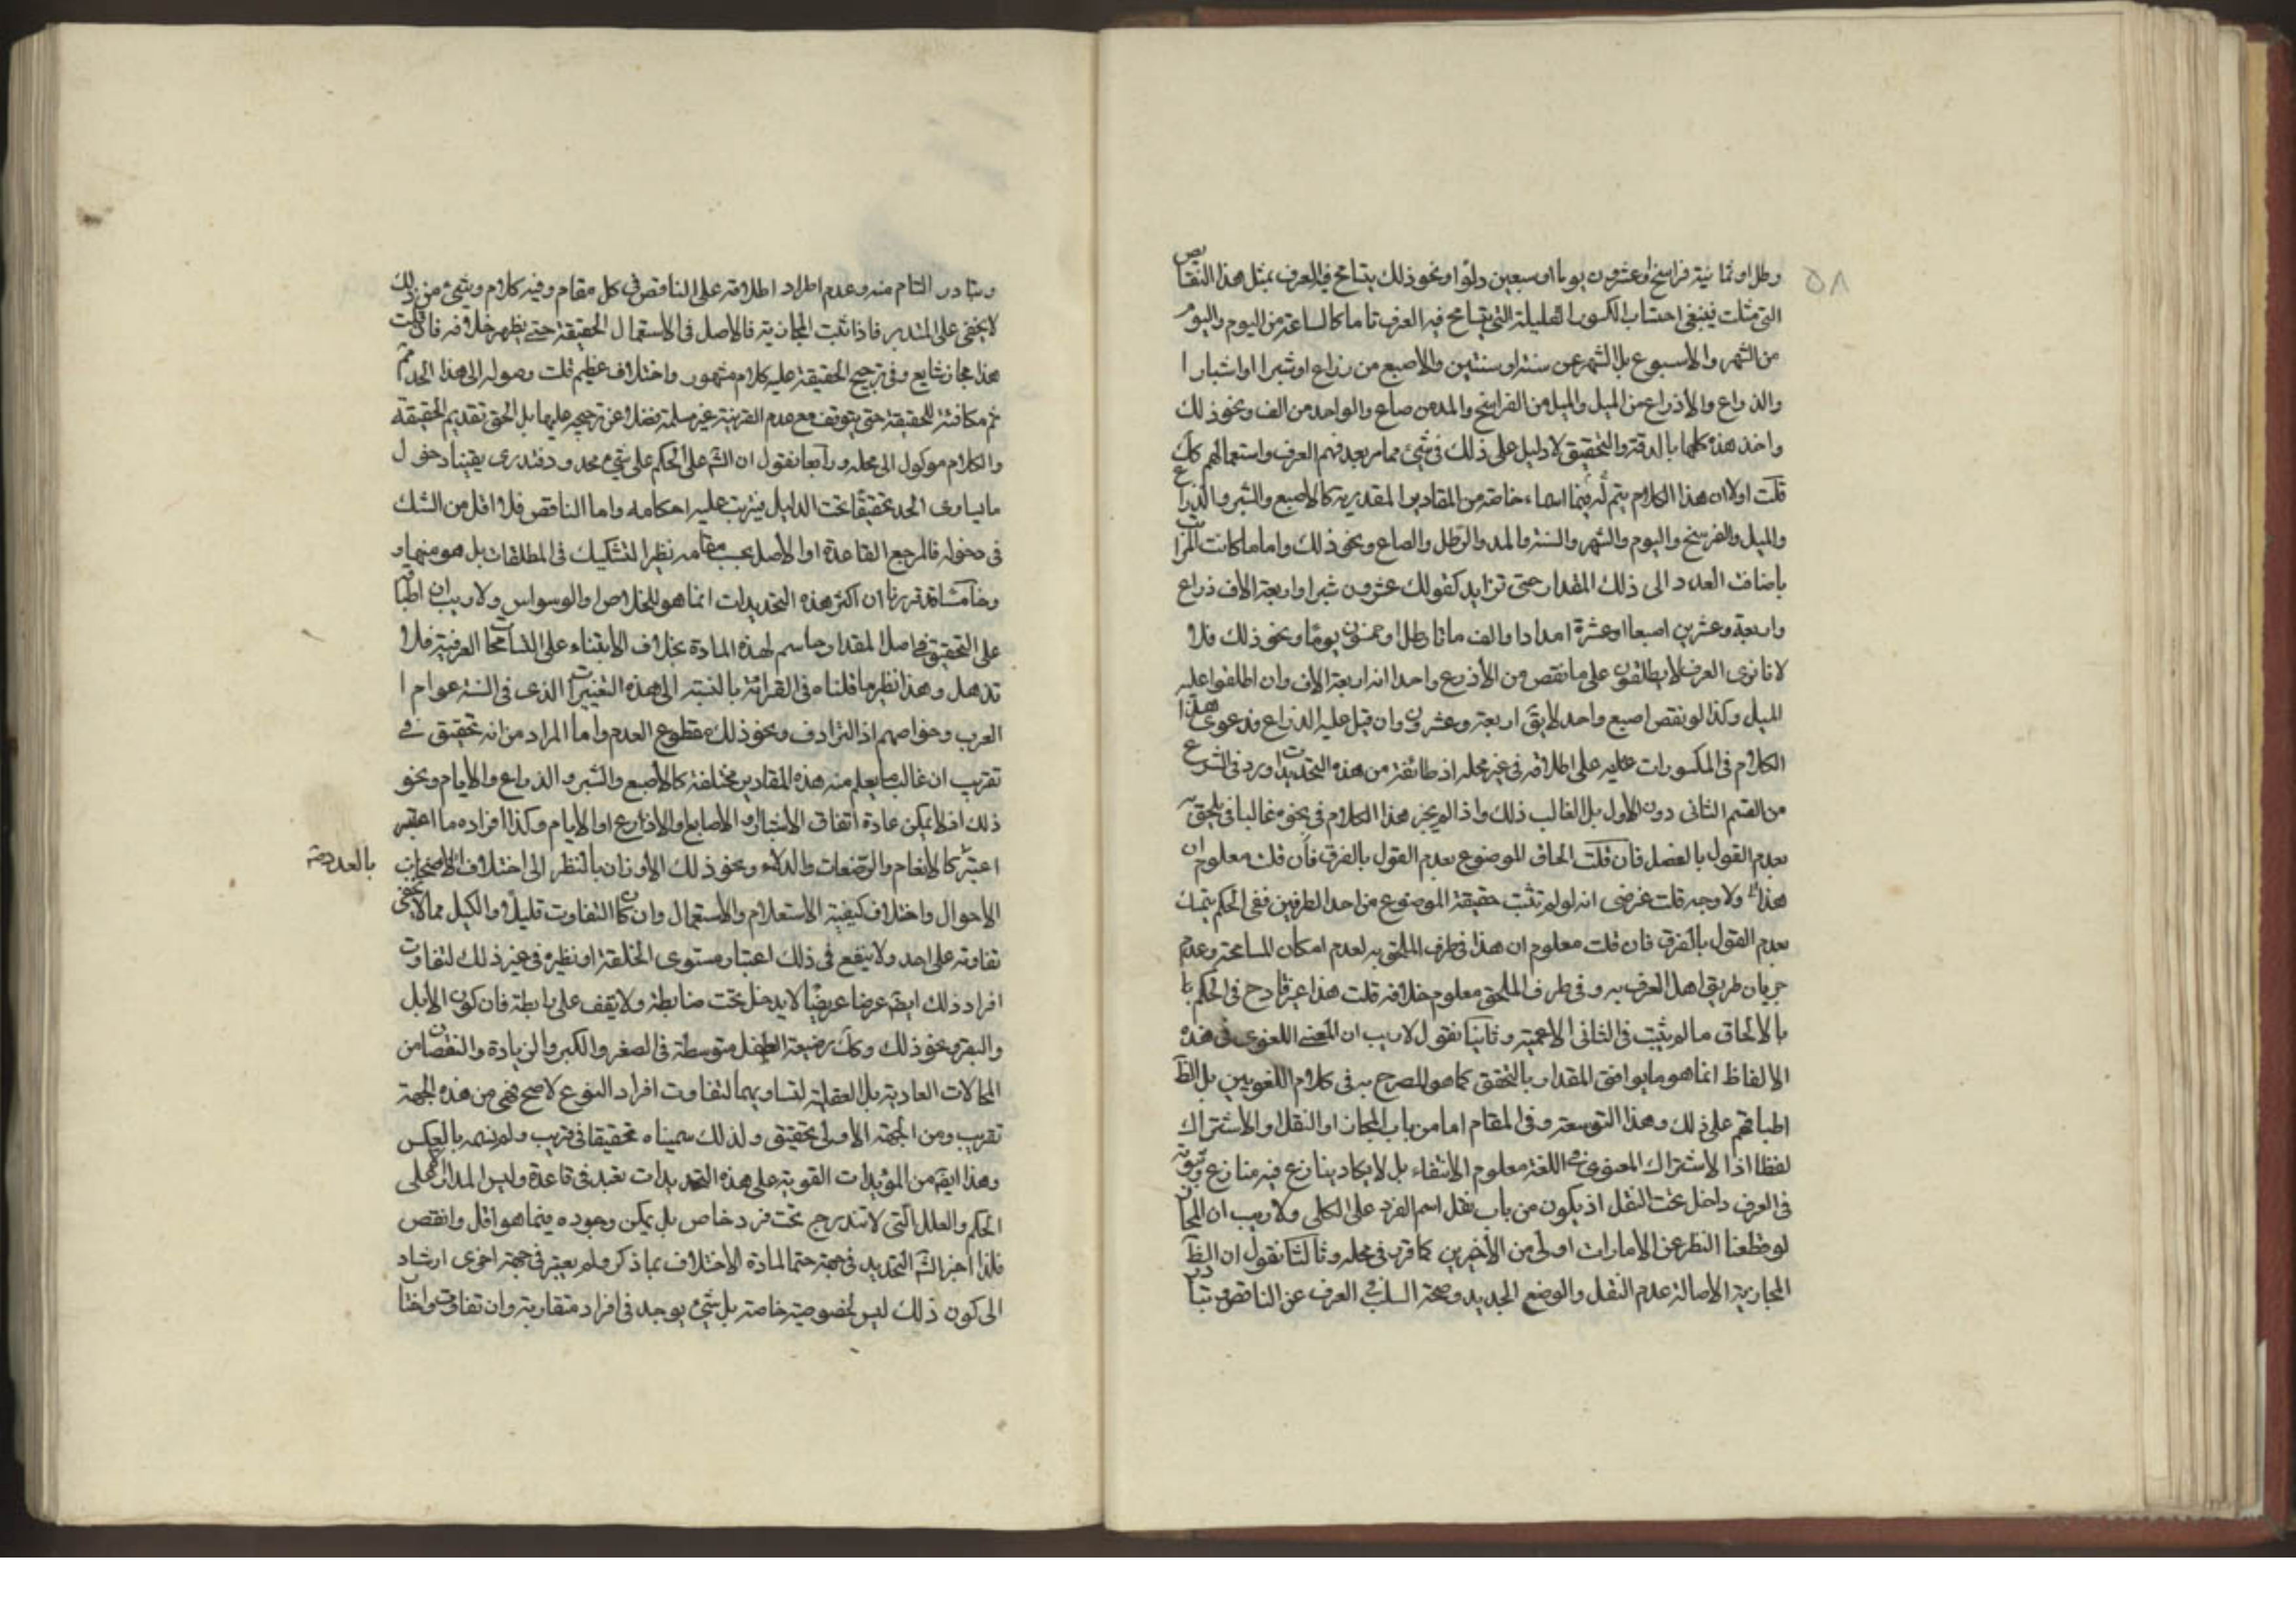 ۵۸
رطل او ثمانية فراسخ او عشرون يوما او سبعين دلوا و نحو ذلك يتسامح فيه العرف بمثل هذا النقايص
التي مثلت فينبغي احتساب الكسور القليلة التي يتسامح فيه العرف تاما كالساعة من اليوم واليوم
من الشهر والاسبوع بل الشهر عن سنة او سنتين والاصبع من ذراع او شبرا او اشبارا
والذراع والأذرع من الميل والميل من الفراسخ والمد من صاع والواحد من الف ونحو ذلك
واخذ هذه كلها بالدقة والتحقيق لا دليل على ذلك في شيء مما مر بعد فهم العرف واستعمالهم كك
قلت اولا ان هذا الكلام يتم له فيما اسماء خاصة من المقادير المقدرية كالاصبع والشبر والذراع
والميل والفرسخ واليوم والشهر والسنة والمد والرطل والصاع ونحو ذلك واما ما كانت المراتب
باضافة العدد الى ذلك المقدار حتى تزايد كقولك عشرون شبرا واربعة الاف ذراع
واربعة وعشرين اصبعا او عشرة امدادا والف ماتا رطل او خمسون يوما ونحو ذلك فلا
لانا نرى العرف لا يطلقون على ما نقص من الأذرع واحدا انه اربعة الاف وان اطلقوا عليه
الميل وكذا لو نقص اصبع واحد لا يبق اربعة وعشرون وان قيل عليه الذراع فدعوى هذا
الكلام في المكسورات عليه على اطلاقه في غير محله اذ طائفة من هذه التحديدات ورد في الشرع
من القسم الثاني دون الاول بل الغالب ذلك واذا لم يجز هذا الكلام في نحو غالبا في يلحق به
بعدم القول بالفصل فان قلت الحاق الموضوع بعدم القول بالفرق فان قلت معلوم ان
هذا ولا وجه قلت غرضي انه لو لم تثبت حقيقة الموضوع من احد الطرفين ففي الحكم يتمسك
بعدم القول بالفرق فان قلت معلوم ان هذا في طرف الملحق به لعدم امكان المسامحة وعدم
جريان طريق اهل العرف به و في طرف الملحق معلوم خلافه قلت هذا غير قادح في الحكم با
بالالحاق ما لم يثبت في الثاني الاعمية وثانيا نقول لا ريب ان المعنى اللغوي في هذه
الالفاظ انما هو ما يوافق المقدار بالتحقق كما هو المصرح به في كلام اللغويين بل الظ
اطباقهم على ذلك وهذا التوسعة وفي المقام اما من باب المجاز او النقل او الاشتراك
لفظا اذا لاشتراك المعنوي في اللغة معلوم الانتفاء بل لا يكاد ينازع فيه منازع وثبوته
في العرف داخل تحت النقل اذ يكون من باب نقل اسم الفرد على الكلي ولا ريب ان المجاز
لو قطعنا النظر عن الأمارات اولى من الأخيرين كما قرر في محله وثالثا نقول ان الظ
المجازية لاصالة عدم النقل والوضع الجديد وصحة السلب في العرف عن الناقص وتبادر
وتبادر التام منه وعدم اطراد اطلاقه على الناقص في كل مقام وفيه كلام وشيء من ذلك
لا يخفى على المتدبر فاذا ثبت المجازية فالاصل في الاستعمال الحقيقة حتى يظهر خلافه فان قلت
هذا مجاز شايع وفي ترجيح الحقيقة عليه كلام مشهور واختلاف عظيم قلت وصوله الى هذا الحد مم
ثم مكافئته للحقيقة حتى يتوقف مع عدم القرينة غير مسلمة فضلا عن ترجيحه عليها بل الحق تقديم الحقيقة
والكلام موكول الى محله ورابعا نقول ان الشرع على الحكم على شيء محدود فندري يقينا دخول
ما يساوي الحد تحقيقا تحت الدليل فيترتب عليه احكامه واما الناقص فلا اقل من الشك
في دخوله فالمرجع القاعدة او الاصل بحسب مقامه نظير التشكيك في المطلقات بل هو منها و
وخامسا قد قررنا ان اكثر هذه التحديدات انما هو للخلاص والوسواس ولا ريب ان اطباقهم
على التحقيق في اصل المقدار حاسم لهذه المادة بخلاف الابتناء على التسامحات العرفية فلا
تذهل وهذا نظير ما قلناه في القرائة بالنسبة الى هذه التغييرات الذي في السنة عوام ا
العرب وخواصهم اذ الترادف ونحو ذلك مقطوع العدم واما المراد من انه تحقيق في
تقريب ان غالب ما يعلم منه هذه المقادير مختلفة كالأصبع والشبر و الذراع والايام ونحو
ذلك اذ لا يمكن عادة اتفاق الأشبار و الاصابع والاذرع او الايام وكذا افراده ما اعتبر
اعتبر كالانعام والرضعات والدلاء ونحو ذلك الاوزان بالنظر الى اختلاف الاصحاب
بالعدد صح
الاحوال واختلاف كيفية الاستعلام والاستعمال وان كان التفاوت قليلا والكيل مما لا يخفى
تفاوته على احد ولا ينفع في ذلك اعتبار مستوى الخلقة او نظيره في غير ذلك لتفاوت
افراد ذلك ايض عرضا عريضا لا يدخل تحت ضابطة ولا يقف على رابطة فان كون الأبل
والبقر ونحو ذلك وكك رضيعة الطفل متوسطة في الصغر والكبر والزيادة والنقصان من
المحالات العادية بل العقلية لتساويهما لتفاوت افراد النوع لاصح فهي من هذه الجهة
تقريب ومن الجهة الأولى تحقيق ولذلك سميناه تحقيقا في تقريب ولم نسمه بالعكس
وهذا ايض من المؤيدات القوية على هذه التحديدات تعبد في قاعدة وليس المدار على
الحكم والعلل التي لا تندرج تحت فرد خاص بل يمكن وجوده فيما هو اقل وانقص
فلذا اخبر الشرع التحديد في جهة حتما لمادة الاختلاف بما ذكر ولم يعتبر في جهة اخرى ارشاد
الى كون ذلك ليس لخصوصية خاصة بل شيء يوجد في افراد متقاربة وان تفاوت واختا